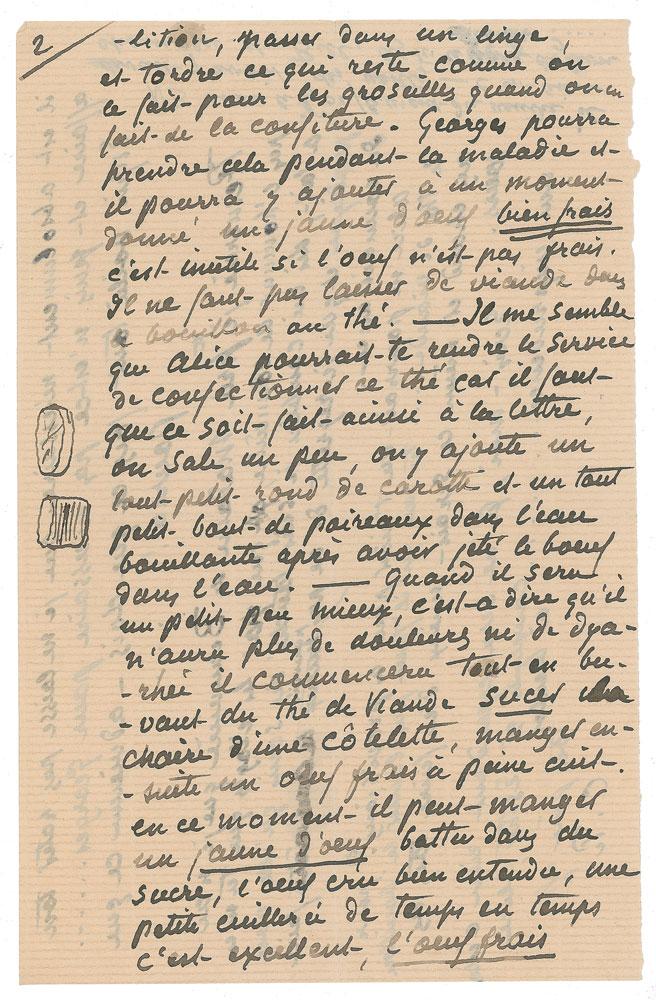 2
-lition, passer dans un linge,
et tordre ce qui reste comme on
le fait pour les groseilles quand on en
fait de la confiture. Georges pourra
prendre cela pendant la maladie et
il pourra y ajouter à un moment
donné un jaune d'oeuf bien frais
c'est inutile si l'oeuf n'est pas frais.
Il ne faut pas laisser de viande dans
le bouillon ou thé. — Il me semble
que Alice pourrait te rendre le service
de confectionner ce thé car il faut
que ce soit fait ainsi à la lettre,
on sale un peu, on y ajoute un
tout petit rond de carotte et un tout
petit bout de poireaux dans l'eau
bouillante après avoir jeté le boeuf
dans l'eau. — Quand il sera
un petit peu mieux, c'est a dire qu'il
n'aura plus de douleurs ni de dya-
-rhée il commencera tout en bu-
-vant du thé de Viande sucer la
chaire d'une côtelette, manger en-
-suite un oeuf frais à peine cuit.
en ce moment il peut manger
un jaune d'oeuf battu dans du
sucre, l'oeuf cru bien entendu, une
petite cuiller à de temps en temps
c'est excellent, l'oeuf frais